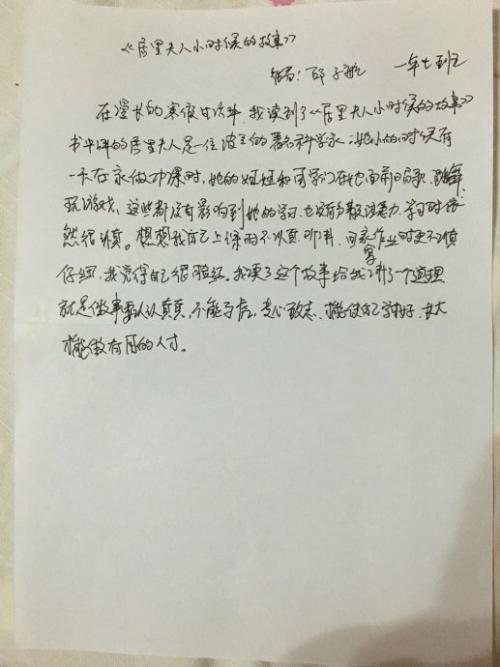 《居里夫人小时候的故事》
编: 邱子航 一年七班
在漫长的寒假生活里, 我读到了《居里夫人小时候的故事》
书中讲的居里夫人是一位波兰的著名科学家, 她小的时候有
一天在家做功课时, 她的姐姐和同学们在她面前唱歌, 跳舞,
玩游戏, 这些都没有影响到她的学习, 也没有分散注意力, 学习时依
然很认真。想想我自己上课而不认真听讲, 回家写作业时更不认真
仔细, 我觉得自己很脸红。我读了这个故事给我讲了一个道理
就是做事要认认真真, 不能马虎, 专心致志, 才能使自己学好, 长大
才能做有用的人才。